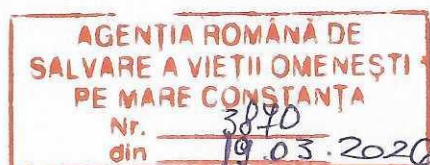 AGENȚIA ROMÂNĂ DE
SALVARE A VIEȚII OMENEȘTI
PE MARE CONSTANȚA
Nr. 3870
din 19.03.2020